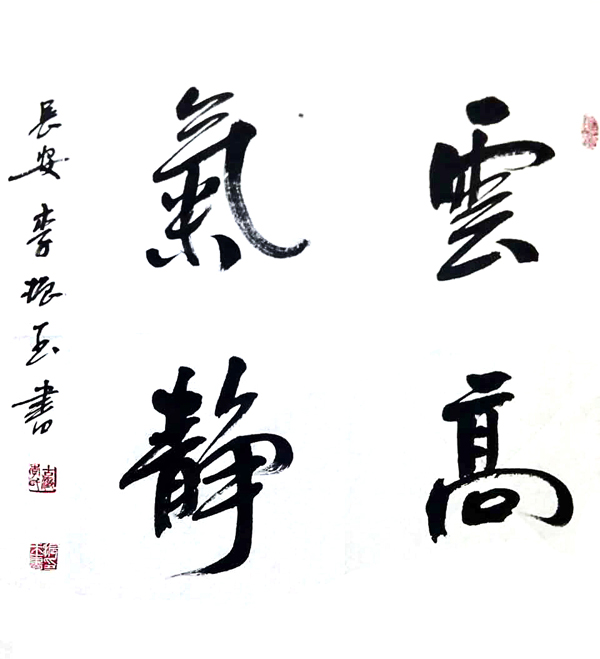 雲高
氣静
長安李振玉書